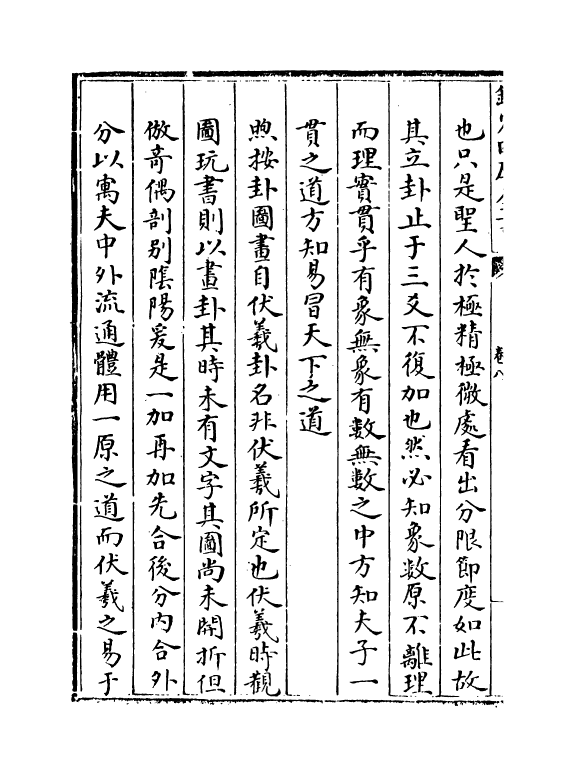 也只是聖人於極精極微處看出分限節度如此故
其立卦止于三爻不復加也然必知象数原不離理
而理實貫乎有象無象有數無數之中方知夫子一
貫之道方知易冒天下之道
煦按卦圖畫自伏羲卦名非伏羲所定也伏羲時觀
圖玩書則以畫卦其時未有文字其圖尚未開折但
倣奇偶剖別陰陽爰是一加再加先合後分内合外
分以寓夫中外流通體用一原之道而伏羲之易于
卷八